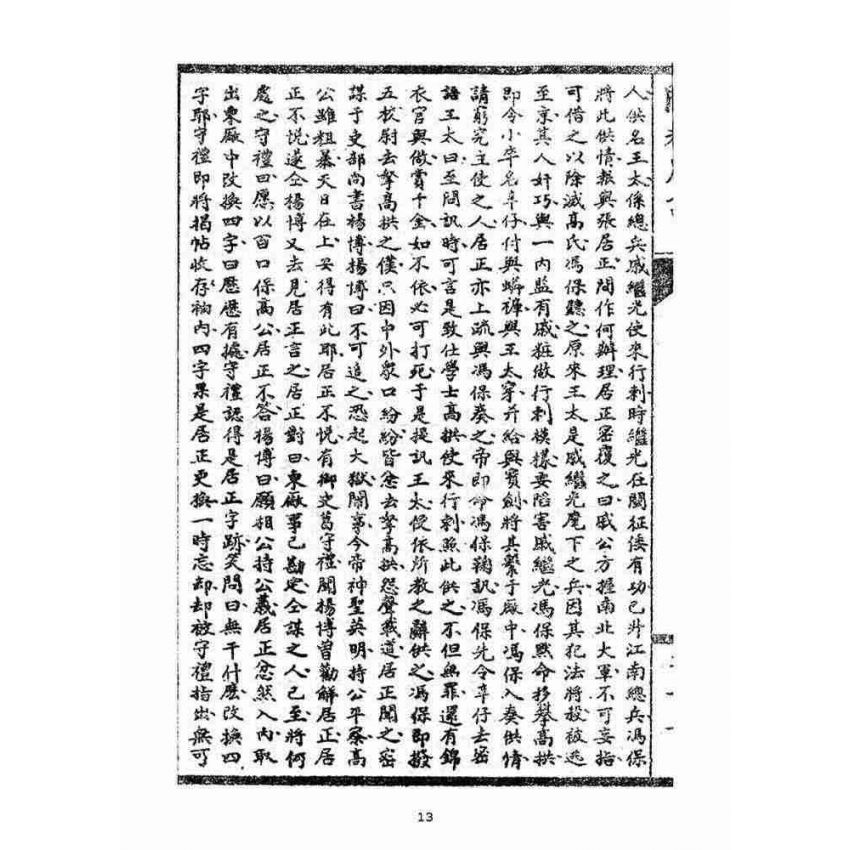 人供名王太係總兵戚繼光使來行刺時繼光在閩征倭有功已陞江南總兵馮保
將此供情報與張居正問作何辦理居正密復之曰戚公方握南北大軍不可妄指
可借之以除滅高氏馮保聽之原來王太是戚繼光麾下之兵因其犯法將殺被逃
至京其人奸巧與一內監有戚粧做行刺模樣要陷害戚繼光馮保默命移攀高拱
即令小卒名辛仔付與蟒褲與王太穿并給與寶劍將其繫于廠中馮保入奏供情
請窮究主使之人居正亦上疏與馮保奏之帝即命馮保鞠訊馮保先令辛仔去密
語王太曰至問訊時可言是致仕學士高拱使來行刺照此供之不但無罪還有錦
衣官與做賞千金如不依必可打死于是提訊王太使依所教之辭供之馮保即撥
五校尉去拏高拱之僕只因中外眾口紛紛皆忿去拏高拱怨聲載道居正聞之密
謀于吏部尚書楊博楊博曰不可追之恐起大獄鬧事今帝神聖英明持公平察高
公雖粗暴天日在上安得有此耶居正不悅有御史葛守禮聞楊博曾勸解居正居
正不悅遂仝楊博又去見居正言之居正對曰東廠事已勘定仝謀之人已至將何
處之守禮曰愿以百口保高公居正不答楊博曰願相公持公義居正忿然入內取
出東廠中改換四字曰歷歷有據守禮認得是居正字跡笑問曰無干什麽改換四
字耶守禮即將揭帖收存袖內四字果是居正更換一時忘却却被守禮指出無可
13